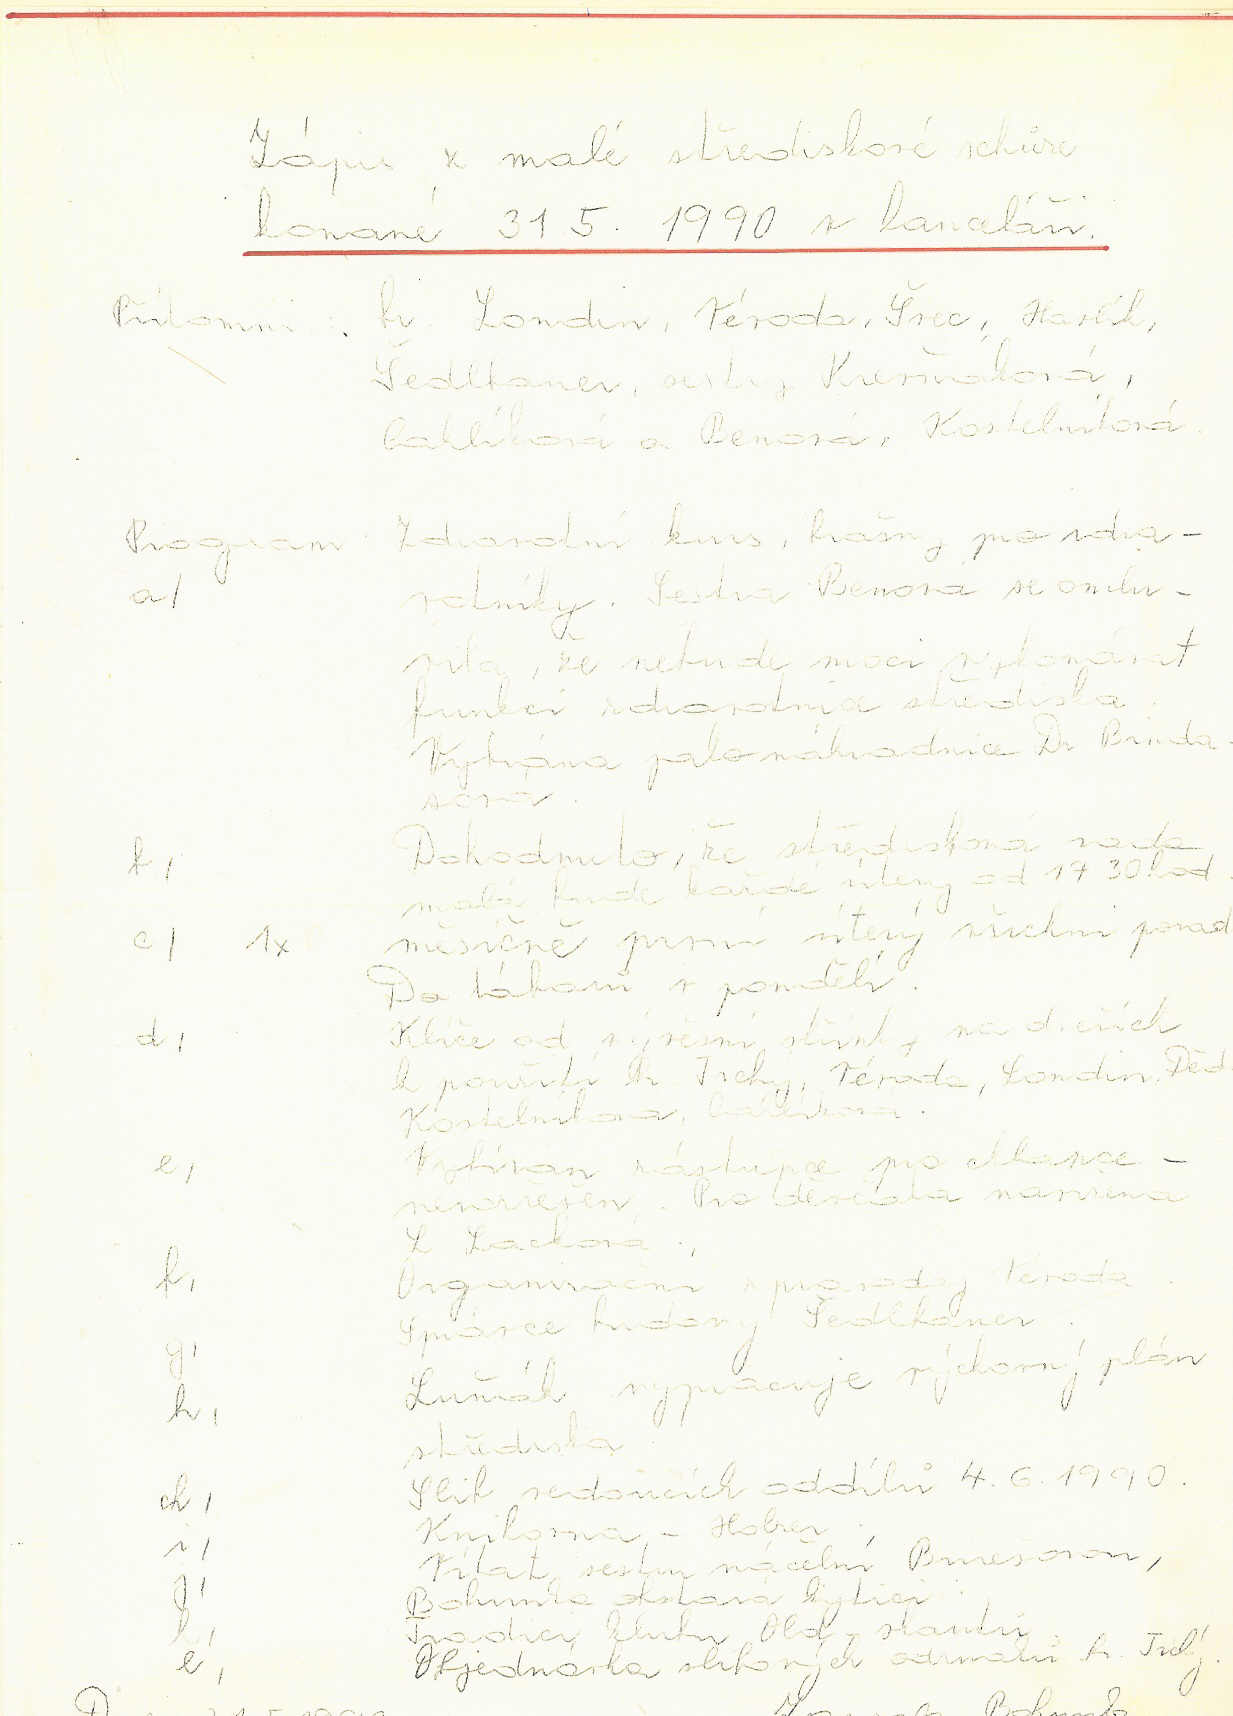 Zápis z malé střediskové schůze
konané 31 5. 1990 v kanceláři.
Přítomni : br. Londin, Véroda, Šrec, Havlík,
Šedlbauer, sestry Kresňáková,
Cahlíková a Benová, Kostelníková.
Program Zdravotní kurs, brašny pro zdra-
a/ votníky. Sestra Benová se omlu-
vila, že nebude moci vykonávat
funkci zdravotnice střediska.
Vybrána jako náhradnice Dr
sová.
b, Dohodnuto, že středisková rada
malá bude každé úterý od 17 30 hod.
c/ 1x měsíčně první úterý všichni porad
Do v pondělí.
d, Klíče od vývěsní skříňky na dveřích
k použití br. Irchy, Véroda, Londin, Děd
Kostelníková, Cahlíková.
e, Vybírán zástupce pro chlapce -
nevyřešen. Pro děvčata navržena
L Lacková.,
f, Organizační zpravodaj Véroda.
g, Správce budovy Šedlbauer.
h, Luňák vypracuje výchovný plán
střediska
ch, Slib vedoucích oddílů 4. 6. 1990.
i, Knihovna - Holzer.
j, Vítat sestru náčelní Burešovou,
Bohunka obstará kytici.
k, Tradici klubu Old skautů
l, Objednávka slibových odznaků br.
31.5.1990 Bohunka